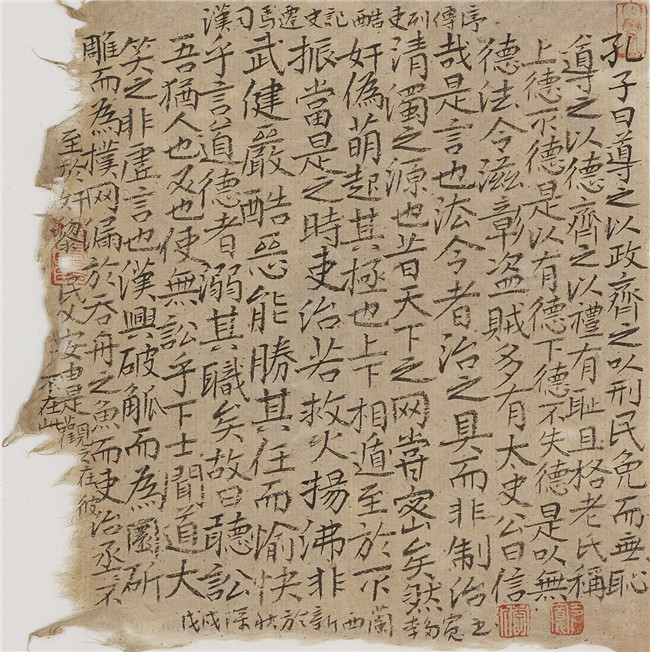 漢司馬遷史記酷吏列傳序
孔子曰導之以政齊之以刑民免而無恥
導之以德齊之以禮有恥且格老氏稱
上德不德是以有德下德不失德是以無
德法令滋彰盜賊多有太史公曰信
哉是言也法令者治之具而非制治
清濁之源也昔天下之网嘗密矣然
奸偽萌起其極也上下相遁至於不
振當是之時吏治若救火揚沸非
武健嚴酷惡能勝其任而愉快
乎言道德者溺其職矣故曰聽訟
吾猶人也必也使無訟乎下士聞道大
笑之非虛言也漢興破觚而為圜斫
雕而為樸网漏於吞舟之魚而吏治烝不
至於奸黎民乂安由是觀之在彼
不在此
戊戌深秋於新西蘭李寬